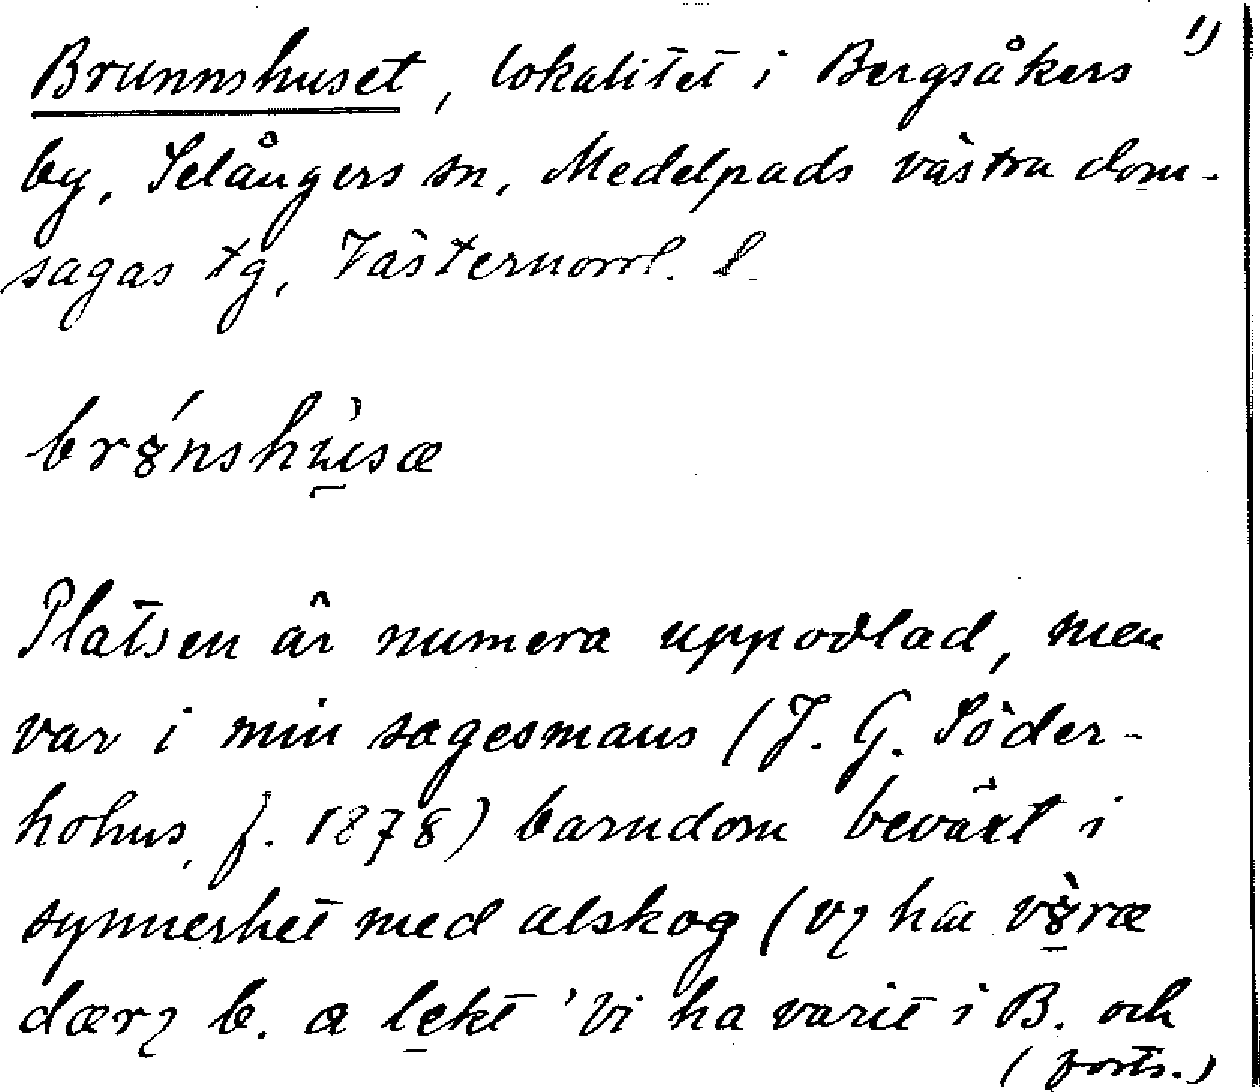 1)
Brunnshuset, lokalitet i Bergsåkers
by, Selångers sn, Medelpads västra dom-
sagas tg, Västernorrl. l.
brȣ́nshu̱̇sæ
Platsen är numera uppodlad, men
var i min sagesmans (J. G. Söder-
holms, f. 1878) barndom beväxt i
synnerhet med alskog (vɿ ha vȣ̱̀ræ
dærɿ b. a le̱kt 'Vi ha varit i B. och
(forts.)